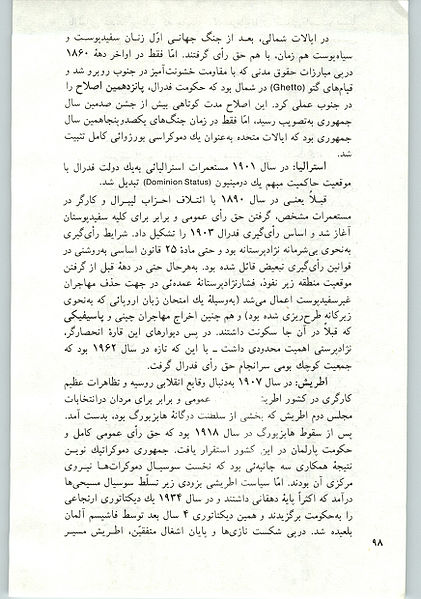 در ایالات شمالی، بعد از جنگ جهانی اوّل زنان سفیدپوست و
سیاه‌پوست هم زمان، با هم حق رأی گرفتند. امّا فقط در اواخر دههٔ ۱۸۶۰
درپی مبارزات حقوق مدنی که با مقاومت خشونت‌آمیز در جنوب روبرو شد و
قیام‌های گتو (Ghetto) در شمال بود که حکومت فدرال، پانزدهمین اصلاح را
در جنوب عملی کرد. این اصلاح مدت کوتاهی بیش از جشن صدمین سال
جمهوری به‌تصویب رسید، امّا فقط در زمان جنگ‌های یکصدوپنجاهمین سال
جمهوری بود که ایالات متحده به‌عنوان یك دموکراسی بورژوائی کامل تثبیت
شد.
استرالیا: در سال ۱۹۰۱ مستعمرات استرالیائی به‌یك دولت فدرال با
موقعیت حاکمیت مبهم یك درمینیون (Dominion Status) تبدیل شد.
قبلاً یعنی در سال ۱۸۹۰ با ائتلاف احزاب لیبرال و کارگر در
مستعمرات مشخص، گرفتن حق رأی عمومی و برابر برای کلیه سفیدپوستان
آغاز شد و اساس رأی‌گیری فدرال ۱۹۰۳ را تشکیل داد. شرایط رأی‌گیری
به‌نحوی بی‌شرمانه نژادپرستانه بود و حتی مادهٔ ۲۵ قانون اساسی به‌روشنی در
قوانین رأی‌گیری تبعیض قائل شده بود. به‌هرحال حتی در دههٔ قبل از گرفتن
موقعیت منطقه زیر نفوذ، فشارنژادپرستانهٔ عمده‌ئی در جهت حذف مهاجران
غیرسفیدپوست اعمال می‌شد (به‌وسیلهٔ یك امتحان زبان اروپائی که به‌نحوی
زیرکانه طرح‌ریزی شده بود) و هم چنین اخراج مهاجران چینی و پاسیفیکی
که قبلاً در آن جا سکونت داشتند. در پس دیوارهای این قارهٔ انحصارگر،
نژادپرستی اهمیت محدودی داشت ــ با این که تازه در سال ۱۹۶۲ بود که
جمعیت کوچك بومی سرانجام حق رأی فدرال گرفت.
اطریش: در سال ۱۹۰۷ به‌دنبال وقایع انقلابی روسیه و تظاهرات عظیم
کارگری در کشور اطریـ عمومی و برابر برای مردان درانتخابات
مجلس دوم اطریش که بخشی از سلطنت درگانهٔ هابزبورگ بود، بدست آمد.
پس از سقوط هابزبورگ در سال ۱۹۱۸ بود که حق رأی عمومی کامل و
حکومت پارلمان در این کشور استقرار یافت. جمهوری دموکراتیك نوین
نتیجهٔ همکاری سه جانبه‌ئی بود که نخست سوسیال دموکرات‌ها نیروی
مرکزی آن بودند. امّا سیاست اطریشی بزودی زیر تسلّط سوسیال مسیحی‌ها
درآمد که اکثراً پایهٔ دهقانی داشتند و در سال ۱۹۳۴ یك دیکتاتوری ارتجاعی
را به‌حکومت برگزیدند و همین دیکتاتوری ۴ سال بعد توسط فاشیسم آلمان
بلعیده شد. درپی شکست نازی‌ها و پایان اشغال متفقیّن، اطریش مسیر
۹۸